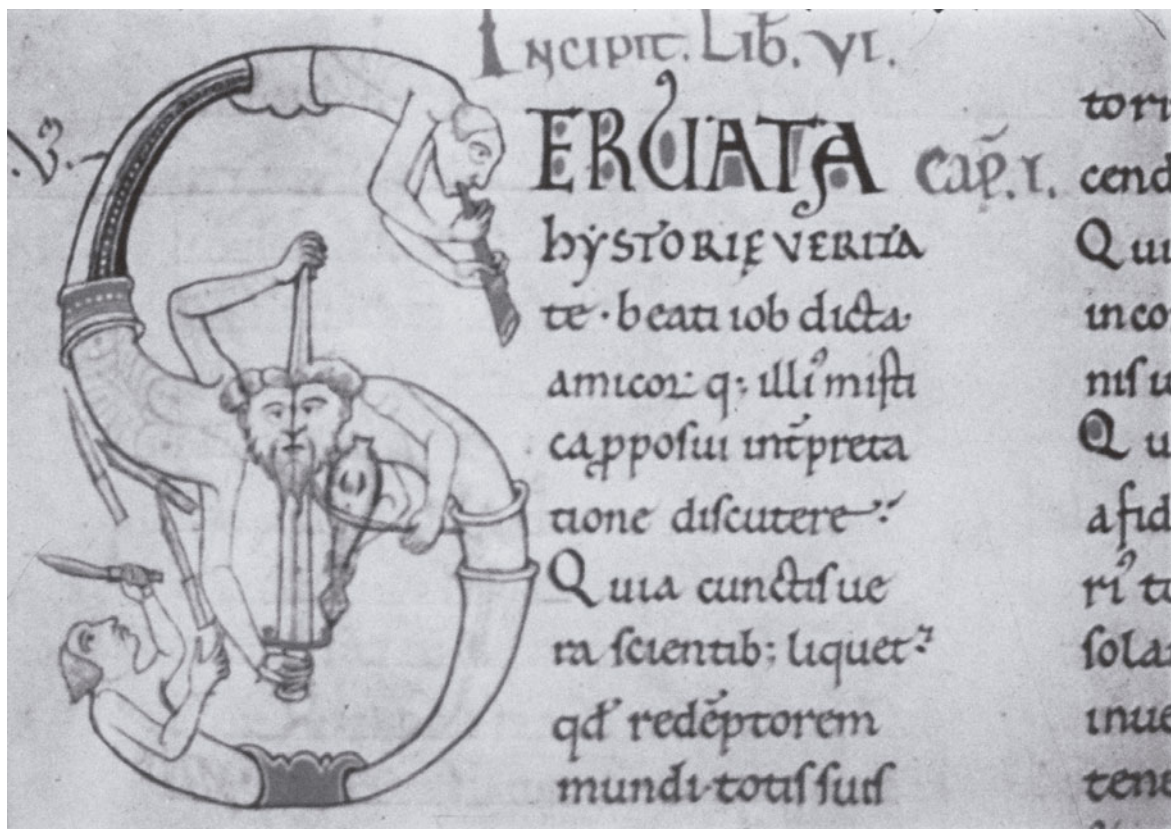 INCIPIT. LIB̄. VI.
ERUATA CAP̄. I.
hẏSTORIĘ VERITA
te · beati iob dicta
amicoꝝ q; illi᾿ misti
ca ꝓposui int̄preta
tione discutere
Quia cunctis ue
ra scientib; liquet
qđ redēptorem
mundi totis suis
tori
cend
Qui
inco
nis u
Qu
a fid
ri᾿ te
sola
inue
tene